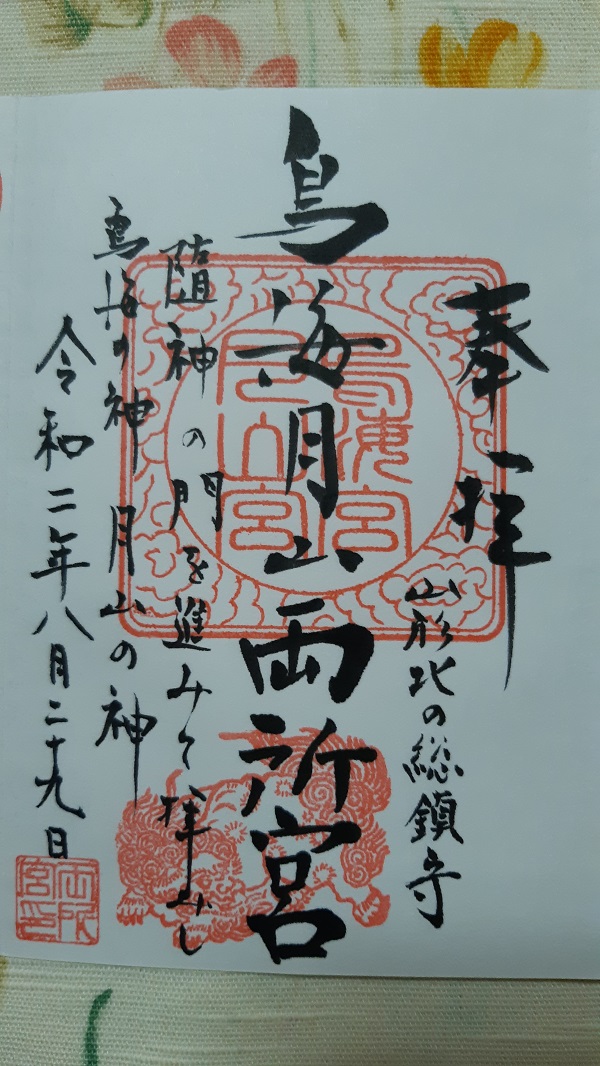 奉拝
山形北の総鎮守
鳥海月山両所宮
随神の門を進みて拝みし
鳥海の神 月山の神
令和二年八月二十九日
鳥海宮
月山宮
両所宮印